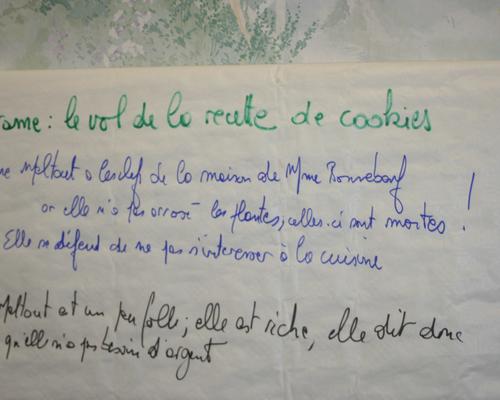 rame : le vol de la recette de cookies
me Meltout a les clef de la maison de Mme Bonneboeuf !
or elle n'a pas arrosé les plantes, celles-ci sont mortes
Elle se défend de ne pas s'interesser à la cuisine
Meltout est un peu folle ; elle est riche, elle dit donc
qu'elle n'a pas besoin d'argent